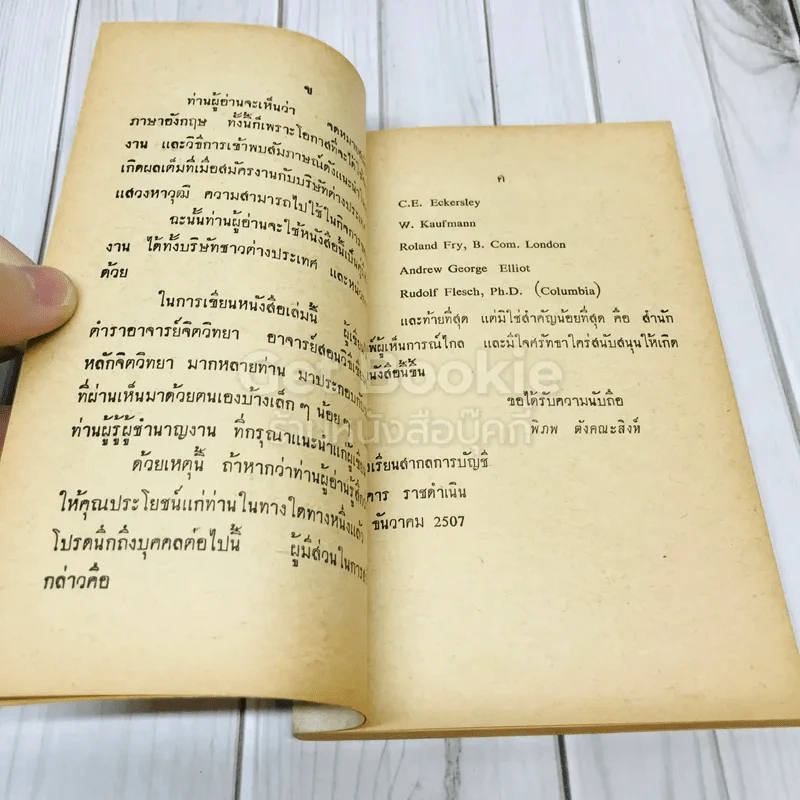 ข
ท่านผู้อ่านจะเห็นว่า จดหมาย
ภาษาอังกฤษ ทั้งนี้ก็เพราะโอกาสที่จะได้
งาน และวิธีการเข้าพบสัมภาษณ์ดังแนะนำ
เกิดผลเต็มที่เมื่อสมัครงานกับบริษัทต่างประเทศ
แสวงหาวุฒิ ความสามารถไปใช้ในกิจการ
ฉะนั้นท่านผู้อ่านจะใช้หนังสือนี้เป็น
งาน ได้ทั้งบริษัทชาวต่างประเทศ และ
ด้วย
ในการเขียนหนังสือเล่มนี้
ตำราอาจารย์จิตวิทยา อาจารย์สอนวิชา
หลักจิตวิทยา มากหลายท่าน มาประกอบ
ที่ผ่านเห็นมาด้วยตนเองบ้างเล็ก ๆ น้อย ๆ
ท่านผู้รู้ผู้ชำนาญงาน ที่กรุณาแนะนำแก่
ด้วยเหตุนี้ ถ้าหากว่าท่านผู้อ่าน
ให้คุณประโยชน์แก่ท่านในทางใดทางหนึ่งแล้ว
โปรดนึกถึงบุคคลต่อไปนี้ ผู้มีส่วนในการ
กล่าวคือ
ค
C.E. Eckersley
W. Kaufmann
Roland Fry, B. Com. London
Andrew George Elliot
Rudolf Flesch, Ph.D. (Columbia)
และท้ายที่สุด แต่มิใช่สำคัญน้อยที่สุด คือ สำนัก
พ์ผู้เห็นการณ์ไกล และมีใจศรัทธาใคร่สนับสนุนให้เกิด
นังสือนี้ขึ้น
ขอได้รับความนับถือ
พิภพ ตังคณะสิงห์
งเรียนสากลการบัญชี
คาร ราชดำเนิน
ธันวาคม 2507
Get Bookie
ร้านหนังสือบุ๊คกี้